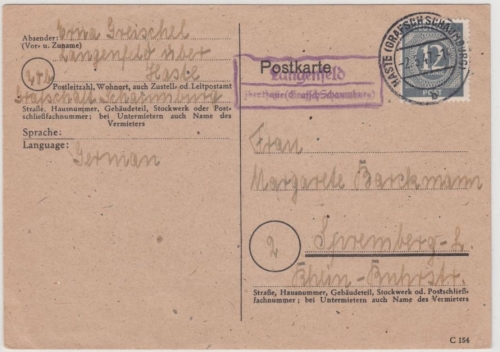 Absender: Erna Greischel
(Vor- u. Zuname)
Langenfeld über
Haste
Postleitzahl, Wohnort, auch Zustell- od. Leitpostamt
Grafschaft Schaumburg
Straße, Hausnummer, Gebäudeteil, Stockwerk oder Post-
schließfachnummer; bei Untermietern auch Name des
Vermieters
Sprache:
Language: German
Postkarte
Langenfeld
über Haste (Grafsch. Schaumburg)
HASTE (GRAFSCH SCHAUMBURG)
12
POST
Frau
Margarete Barckmann
2
Spremberg-L.
Straße, Hausnummer, Gebäudeteil, Stockwerk od. Postschließ-
fachnummer; bei Untermietern auch Name des Vermieters
C 154